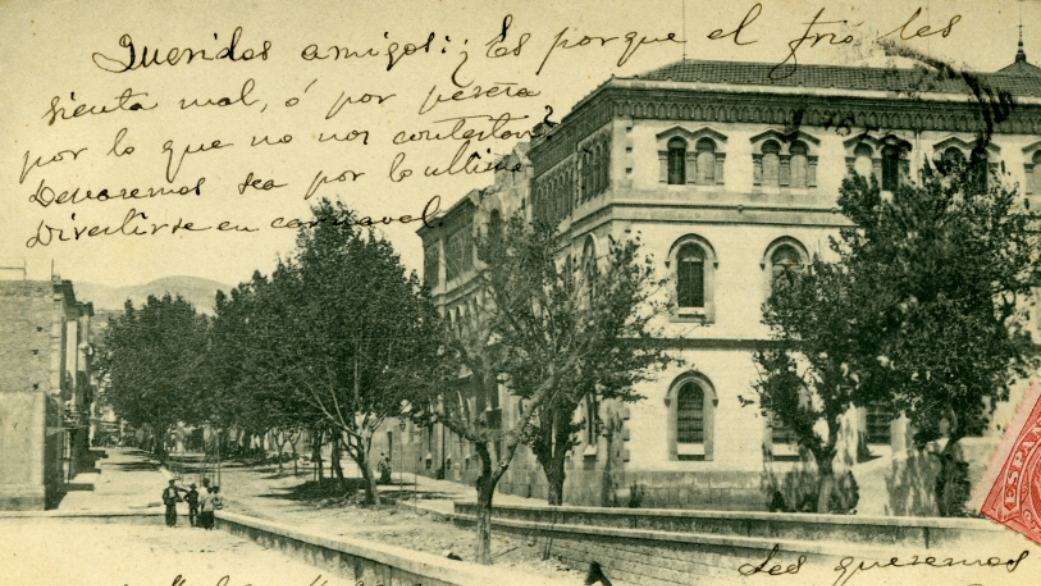 Queridos amigos: ¿Es porque el frío les
sienta mal, ó por pereza
por lo que no nos contestan?
Deseamos sea por lo ultimo
Divertirse en carnaval.
Les queremos
ESPAÑA